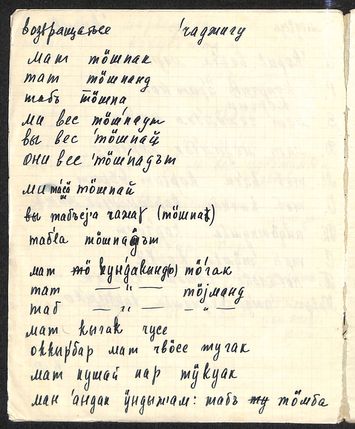 возвращаться 'чаджигу
мат тӧшпак
тат тӧшпанд
табъ тӧшпа
ми вес тӧшпаут
вы вес 'тӧшпай
они все 'тӧшпадът
ми тӧшпай
вы табъеј'а чажа (тӧшпа)
таб'ла тӧшпадът
мат кун'д'акынд(ъ) тӧ'гак
тат —〃— тӧјманд
таб —〃— —〃—
мат кыгак чусе
оккырбар мат чвӧсе тугак
мат кушай кар тӱкуак
ман 'андак ӱндыжам: табъ тӧмба